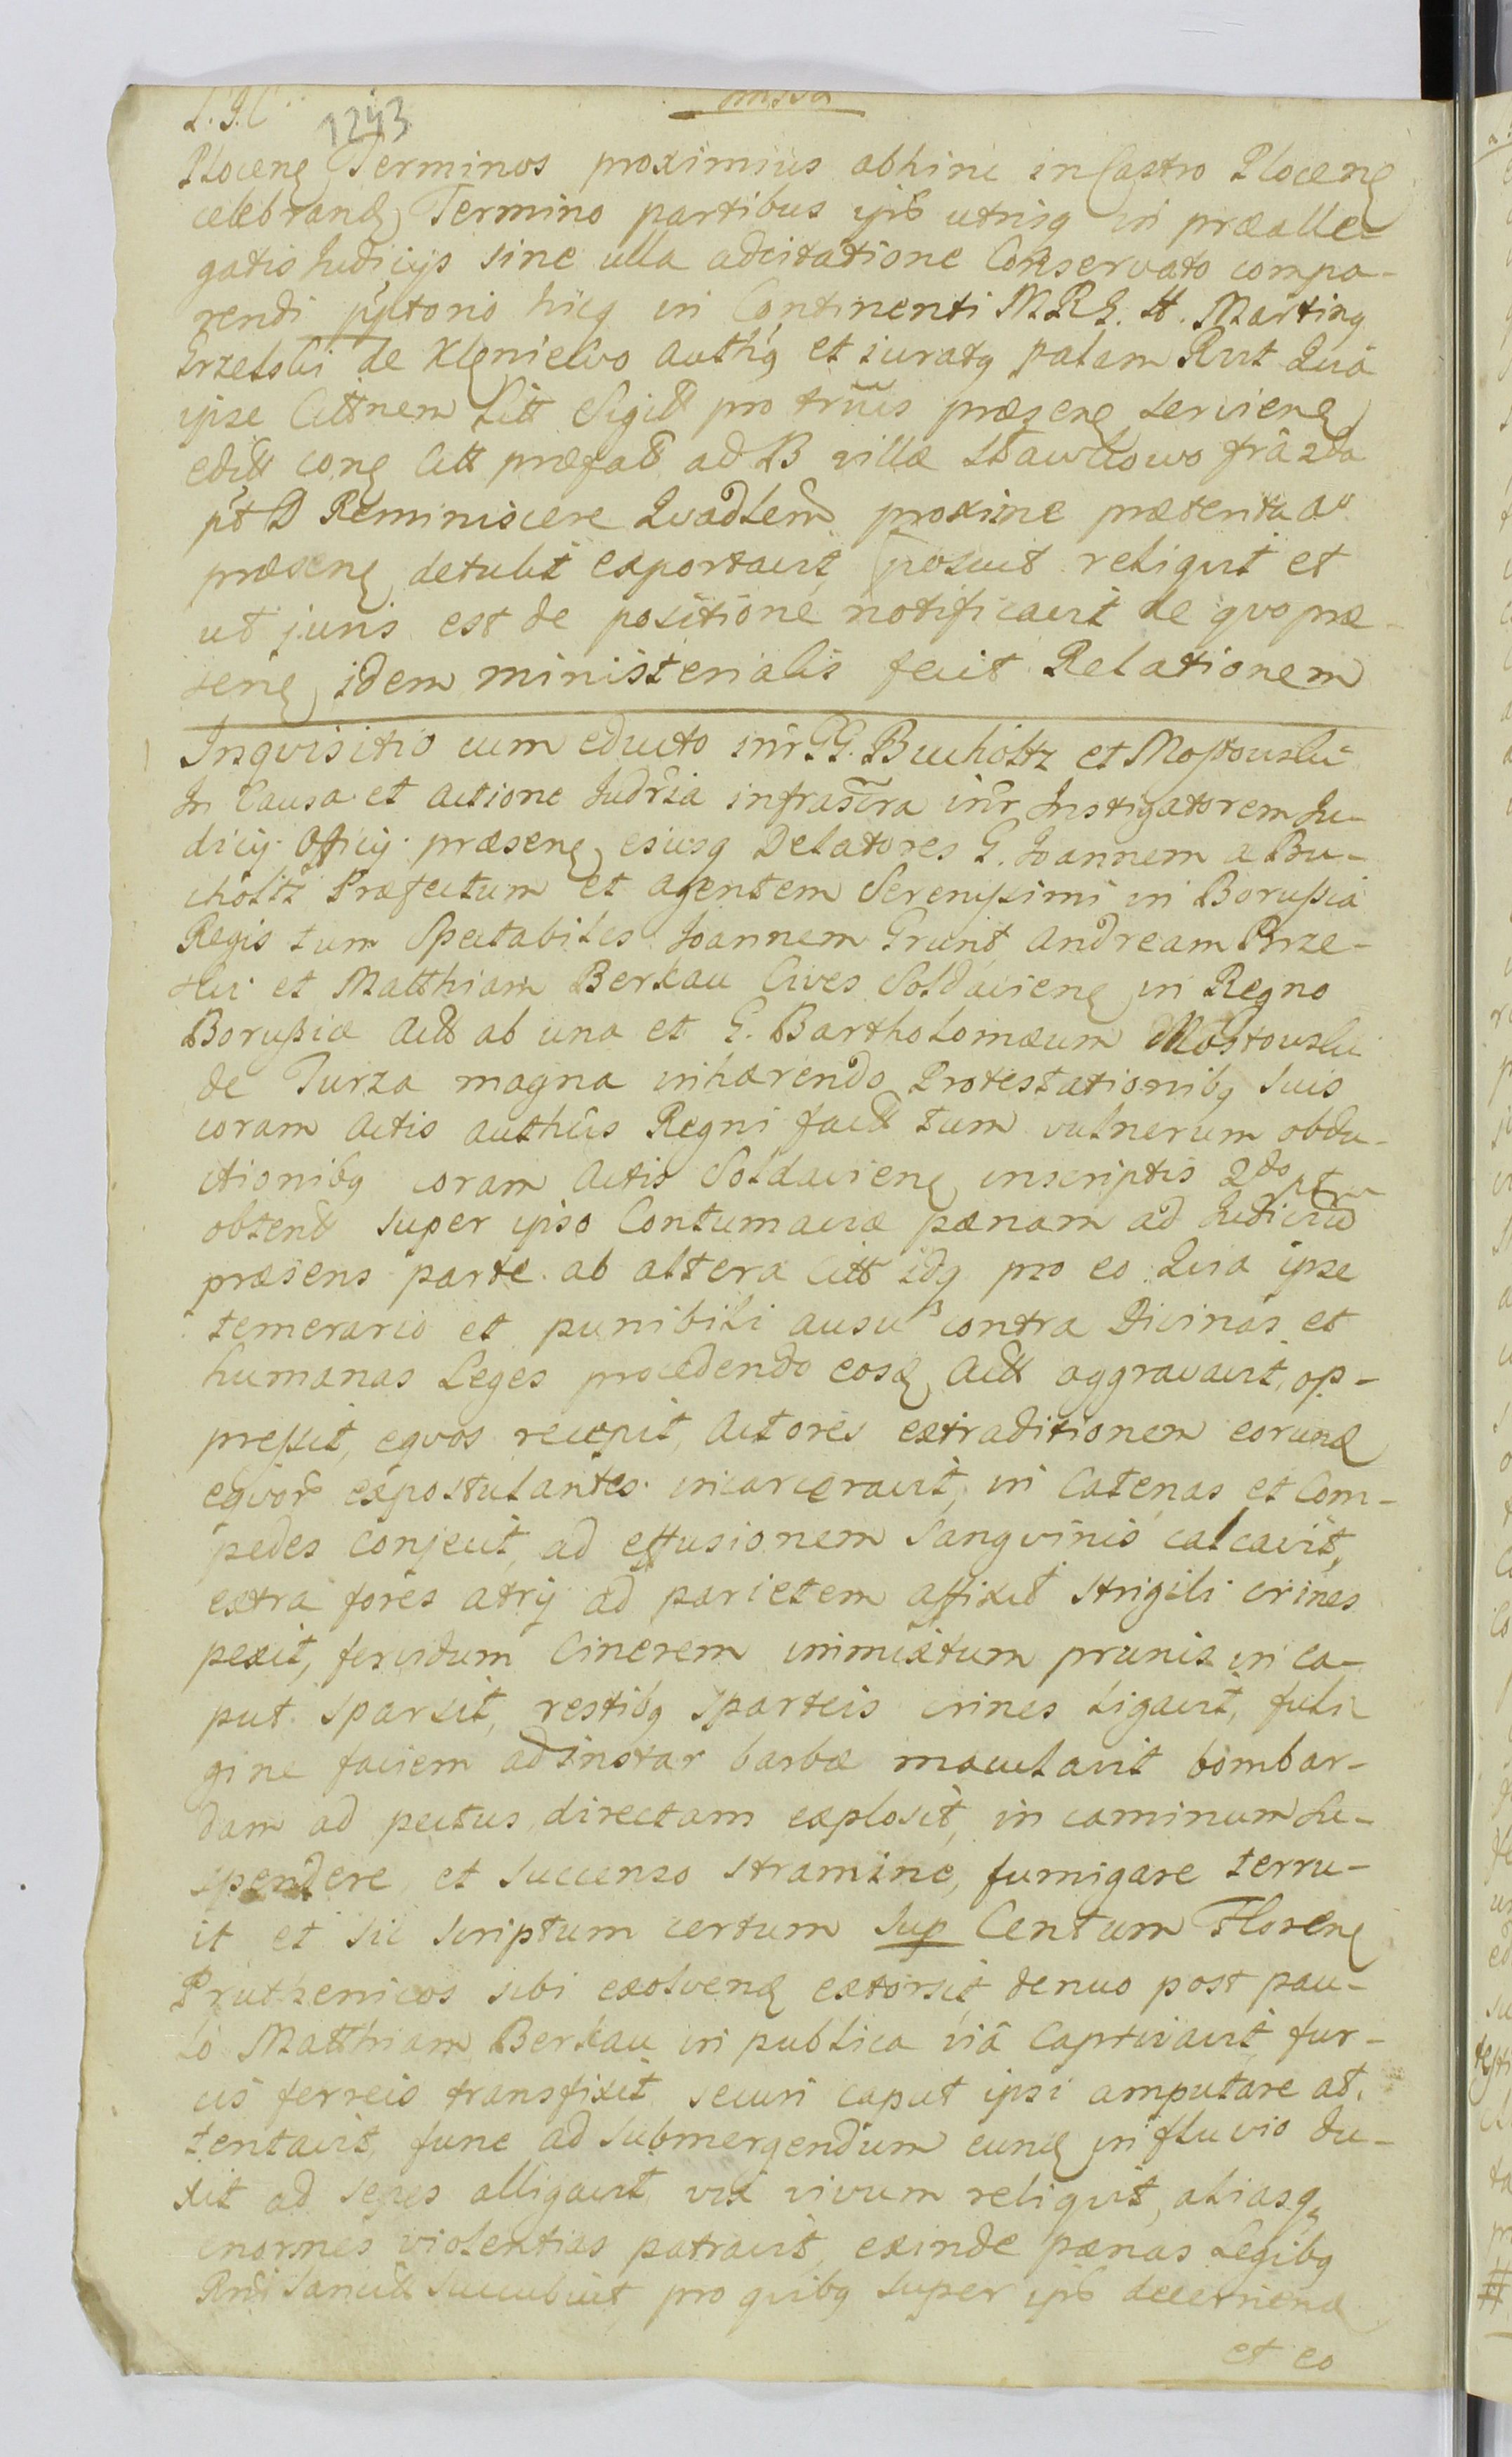 omissa
L. J. C.
1243
Plocen Terminos proximius abhinc in Castro Plocen
celebrand Termino partibus ips utrisq in præalle-
gatis Judicijs sine ulla adcitatione Conservato compa-
rendi pptorio hicq in Continenti M.R.G. H. Martinq
Grzelski de Kleniewo Authq et juratq palam Rvit Quia
ipse Cittnem Litt Sigill pro trnis præsen servien
editt con Citt præfatt ad B villæ Sławkowo fra 2da
pt D Reminiscere Quadlem proxime præterita ao
præsen detulit exportavit posuit reliqvit et
ut juris est de positione notificavit de qvo præ-
sen idem ministerialis fecit Relationem
Inqvisitio cum educto intr GG. Bucholtz et Mostowski
In Causa et Actione Judria infrascra intr Instigatorem Ju-
dicij Officij præsen ejusq Delatores G. Joannem a Bu-
choltz Præfectum et Agentem Serenissimi in Borussia
Regis tum Spectabiles Joannem Grunt Andream Prze-
ski et Matthiam Berkau Cives Soldavien in Regno
Borussiæ Actt ab una et G. Bartholomæum Mostowski
de Turza magna inhærendo Protestationibq suis
coram Actis authcis Regni factt tum vulnerum obdu-
ctionibq coram Actis Soldavien inscriptis 2do
obtent super ipso Contumaciæ pænam ad Judiciu
præsens parte ab altera Citt idq pro eo Quia ipse
temerario et punibili ausu contra Divinas et
humanas Leges procedendo eosd Actt aggravavit, op-
pressit, eqvos recepit, Actores extraditionem eorund
eqvor expostulantes incarceravit, in Catenas et Com-
pedes conjecit, ad effusionem Sangvinis calcavit,
extra fores atrij ad parietem affixit strigili crines
pexit, fervidum Cinerem immixtum prunis in ca-
put sparsit, restibq sparteis crines ligavit, fuli-
gine faciem ad instar barbæ maculavit bombar-
dam ad pectus directam explosit, in caminum su-
spendere, et succenso stramine, fumigare terru-
it et sic scriptum certum sup Centum Floren
Pruthenicos sibi exolvend extorsit, denuo post pau-
lo Matthiam Berkau in publica viâ captivavit, fur-
cis ferreis transfixit securi caput ipsi amputare at-
tentavit, fune ad submergendum eund in fluvio du-
xit ad sepes alligavit vix vivum reliqvit, aliasq
enormes violentias patravit, exinde pænas Legibq
Rni Sancitt succubuit, pro qvibq super ips decernend
et eo